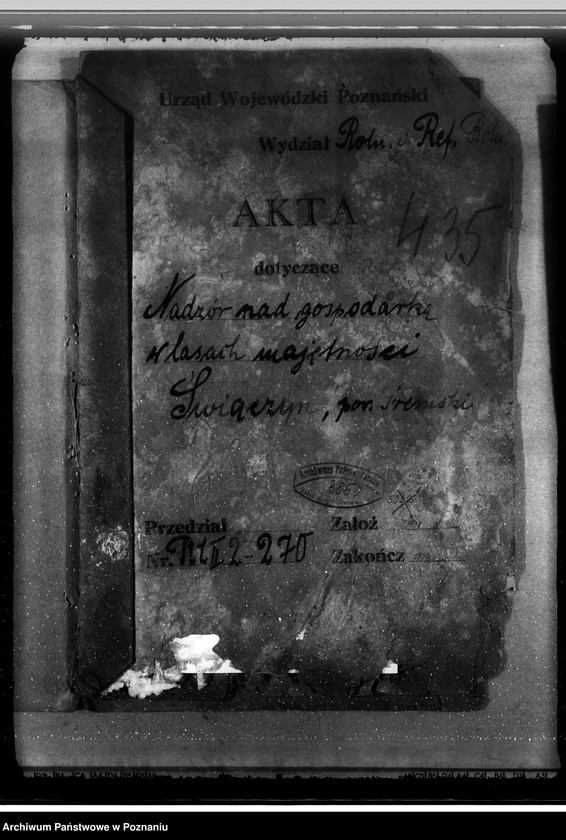 Urząd Wojewódzki Poznański
Wydział Roln. i Ref. Roln.
AKTA
435
dotyczące
Nadzór nad gospodarką
w lasach majętności
Święczyn, pow. śremski
Archiwum Państwowe
6860
Przedział
Założ
Nr. 2-270
Zakończ
Archiwum Państwowe w Poznaniu